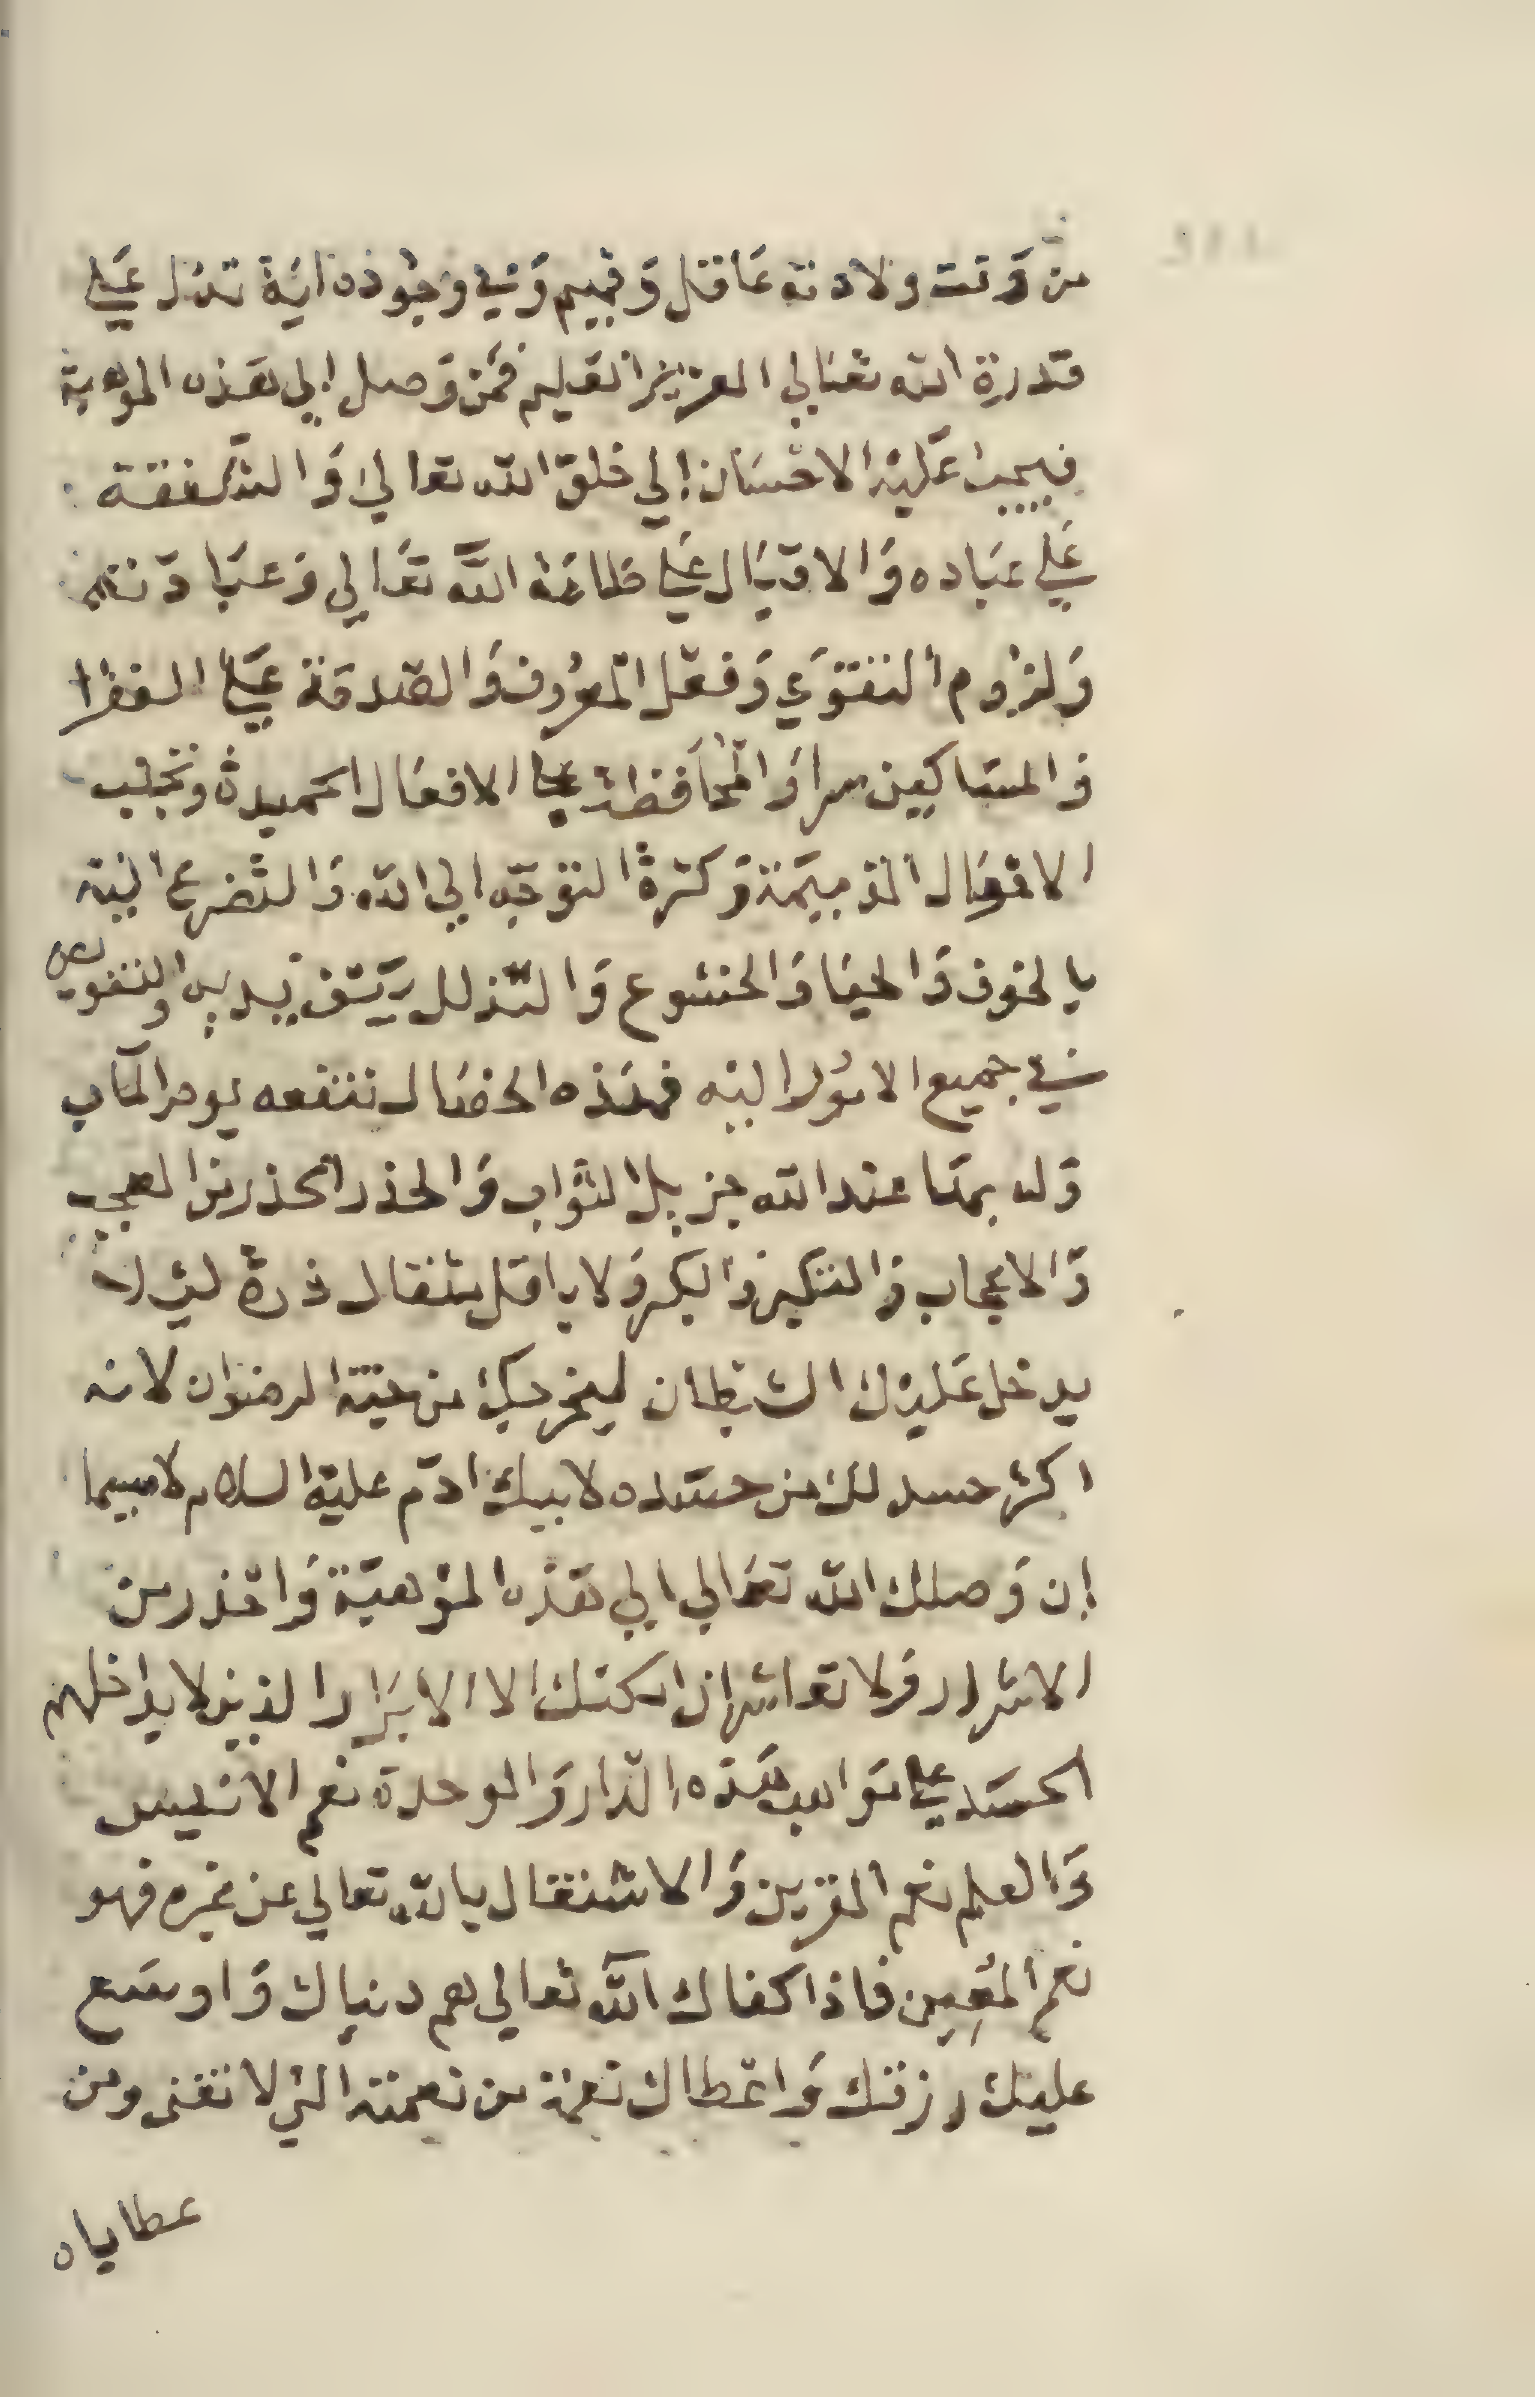 من وقت ولادته عاقل وفهيم وفي وجوده اية تدل علي
قدرة الله تعالي العزيز العليم فمن وصل الي هذه الموهبة
فيجب عليه الاحسان الي خلق الله تعالي والشفقة
علي عباده والاقبال علي طاعة الله تعالي وعبادته
ولزوم التقوي وفعل المعروف والصدقة علي الفقرا
والمساكين سرا والمحافظة علي الافعال الحميدة وتجنب
الافعال الذميمة وكثرة التوجه الي الله والتضرع اليه
بالخوف والحيا والخشوع والتذلل بين يديه والتفويض
في جميع الامور اليه فهذه الخصال تنفعه يوم المآب
وله بها عند الله جزيل الثواب والحذر الحذر من العجب
والاعجاب والتكبر والكبر ولا باقل مثقال ذرة ليلا
يدخل عليك الشيطان ليخرجك من جنة الرضوان لانه
اكثر حسد لك من حسده لابيك ادم عليه السلام لاسيما
إن وصلك الله تعالي الي هذه الموهبة واحذر من
الاشرار ولا تعاشر ان امكنك الا الابرار الذين لا يداخلهم
الحسد علي مواهب هذه الدار والوحدة نعم الانيس
والعلم نعم القرين والاشتغال بالله تعالي عن غيره فهو
نعم المعين فاذا كفاك الله تعالي هم دنياك واوسع
عليك رزقك واعطاك نعمة من نعمته التي لا تفنى ومن
عطاياه